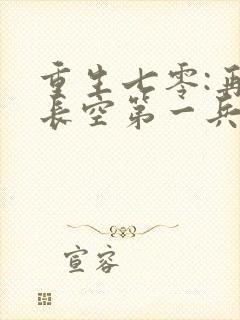 重生七零:再
长空第一兵
宣容